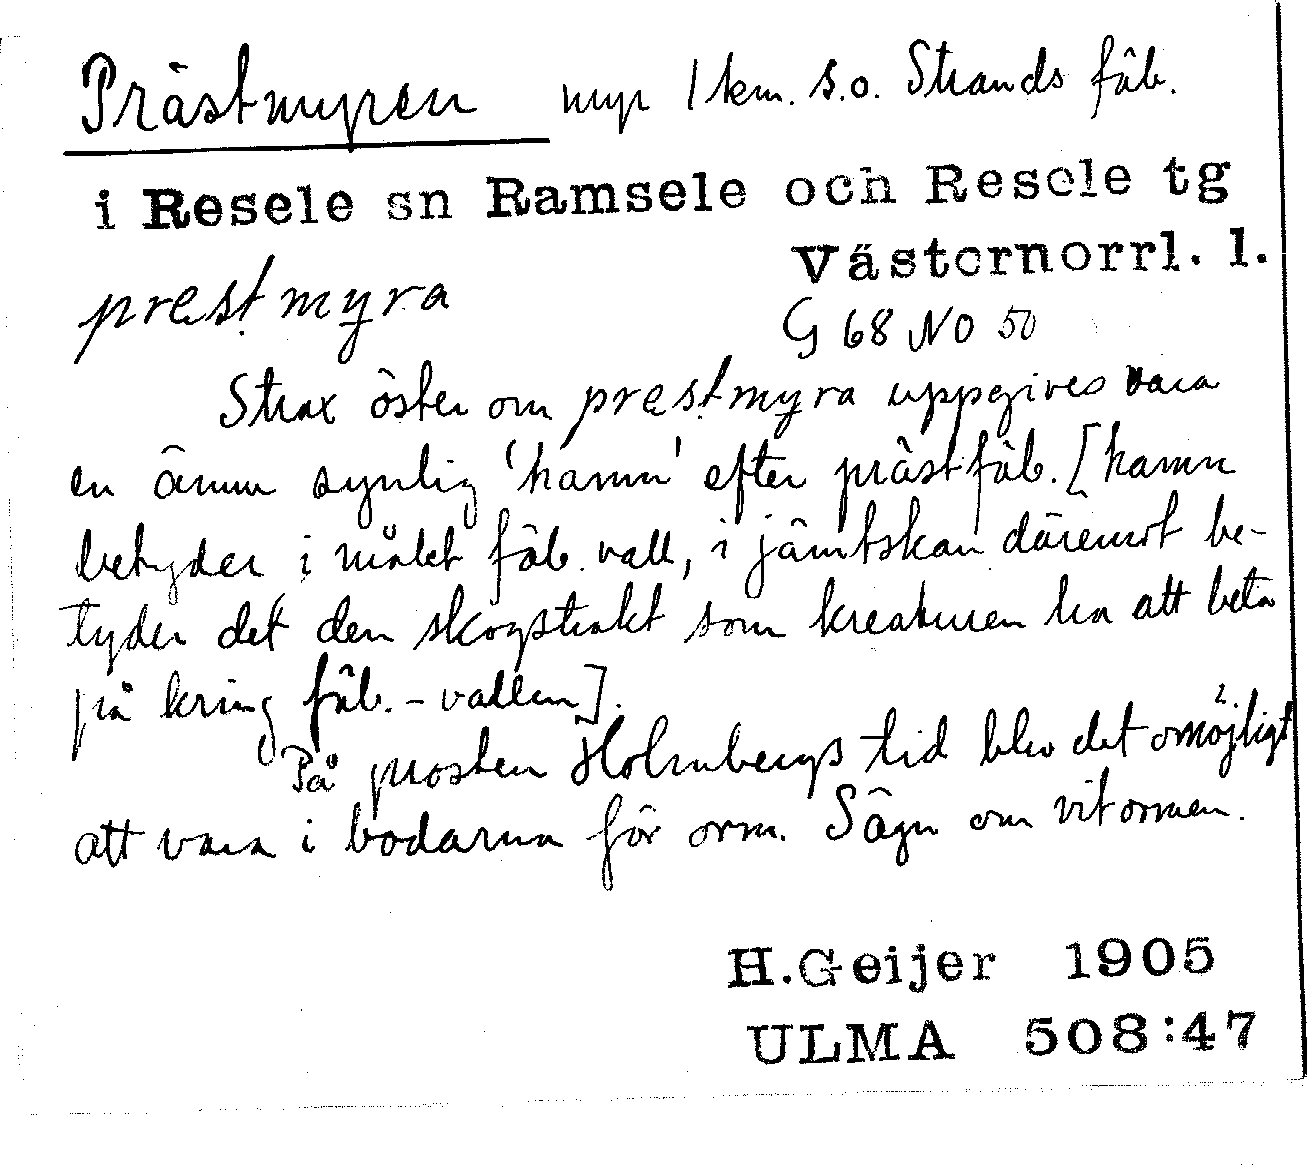 Prästmyren myr 1 km. s.o. Strands fäb.
i Resele sn Ramsele och Resele tg
Västernorrl. l.
prest myra
G 68 NO 50
Strax öster om prest myra uppgives vara
en ännu synlig 'hamn' efter präst fäb. [hamn
betyder i målet fäb. vall, i jämtskan däremot be-
tyder det den skogstrakt som kreaturen ha att beta
på kring fäb.-vallen].
På prosten Holmbergs tid blev det omöjligt
att vara i bodarna för orm. Sägn om vitormen.
H.Geijer 1905
ULMA 508:47